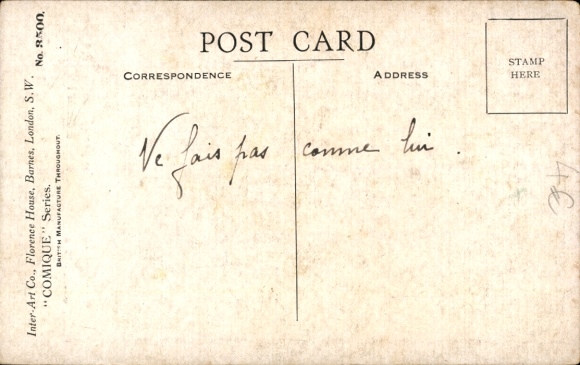 POST CARD
CORRESPONDENCE
ADDRESS
STAMP
HERE
Ne fais pas comme lui.
Inter-Art Co., Florence House, Barnes, London, S.W. No. 3500.
"COMIQUE" Series.
BRITISH MANUFACTURE THROUGHOUT.